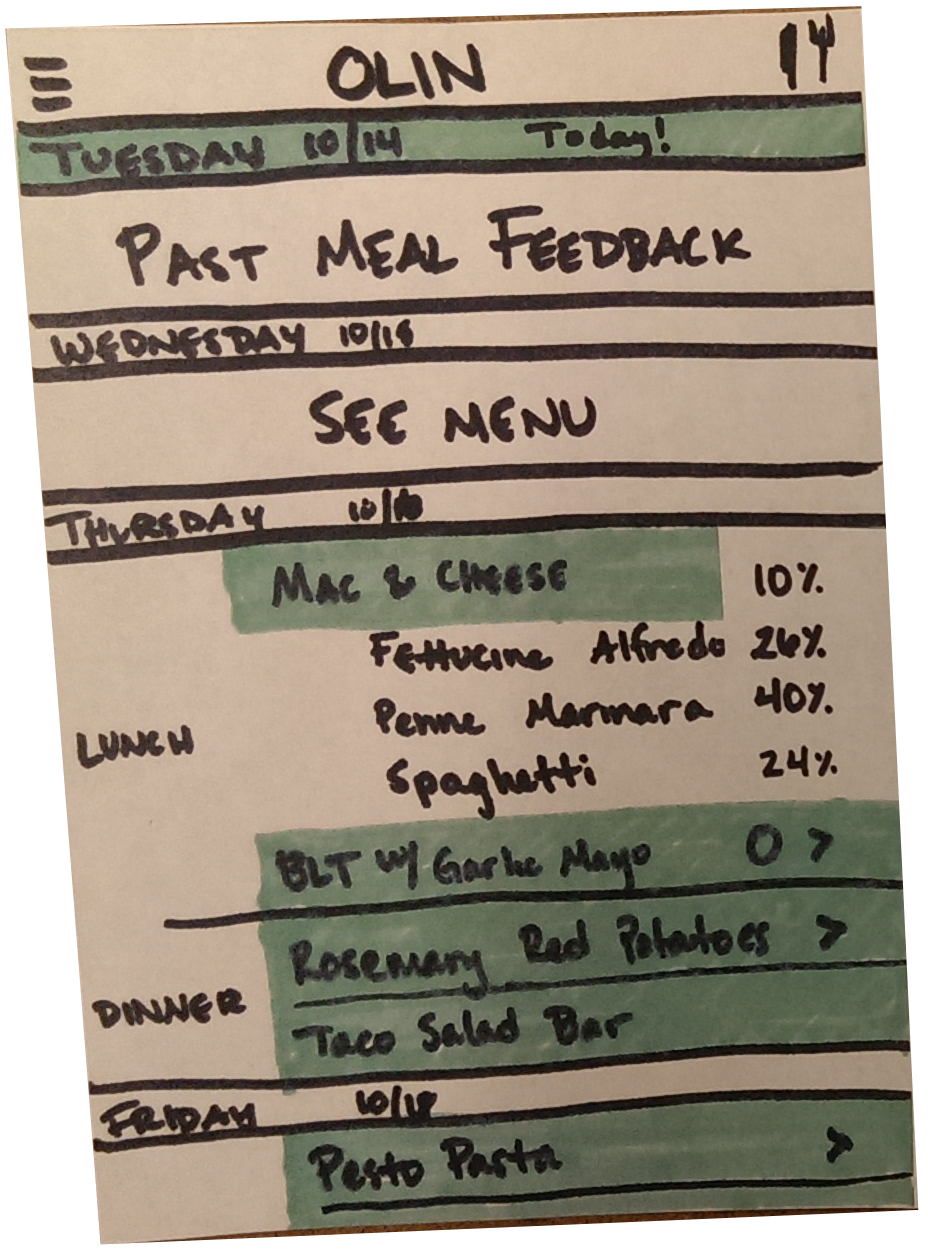 OLIN
TUESDAY 10/14 Today!
PAST MEAL FEEDBACK
WEDNESDAY 10/15
SEE MENU
THURSDAY 10/16
MAC & CHEESE 10%
Fettucine Alfredo 26%
Penne Marinara 40%
LUNCH
Spaghetti 24%
BLT w/ Garlic Mayo 0 >
Rosemary Red Potatoes >
DINNER
Taco Salad Bar
FRIDAY 10/18
Pesto Pasta >